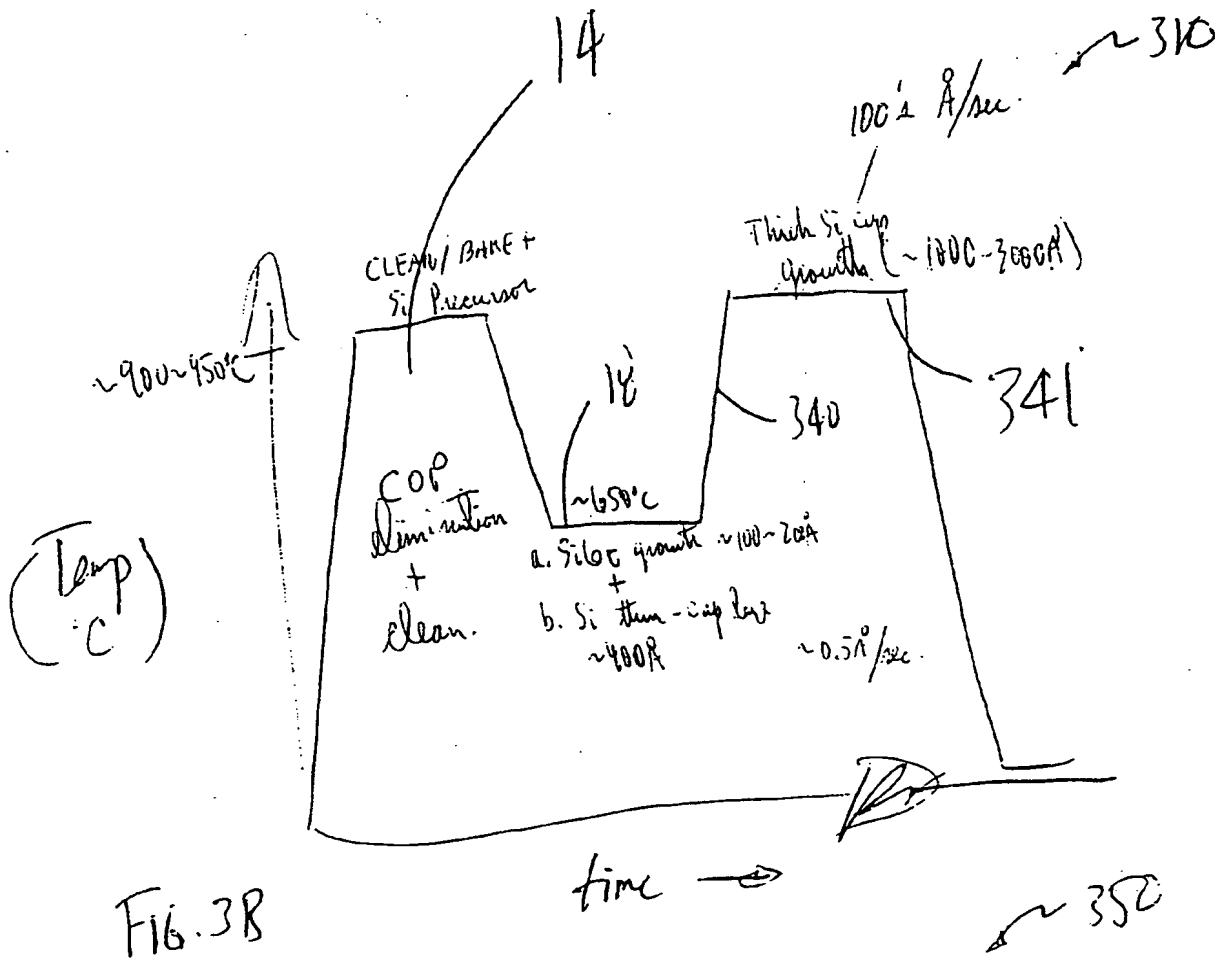 14
310
100's Å/sec.
CLEAN/BAKE +
Si Precursor
Thick Si cap
growth
~650°C
18
340
341
COP
elimination
+
clean.
(Temp
°C)
a. SiGe growth ~100~200Å
+
b. Si thin-cap
~400Å
~0.5Å/sec.
time →
FIG. 3B
350